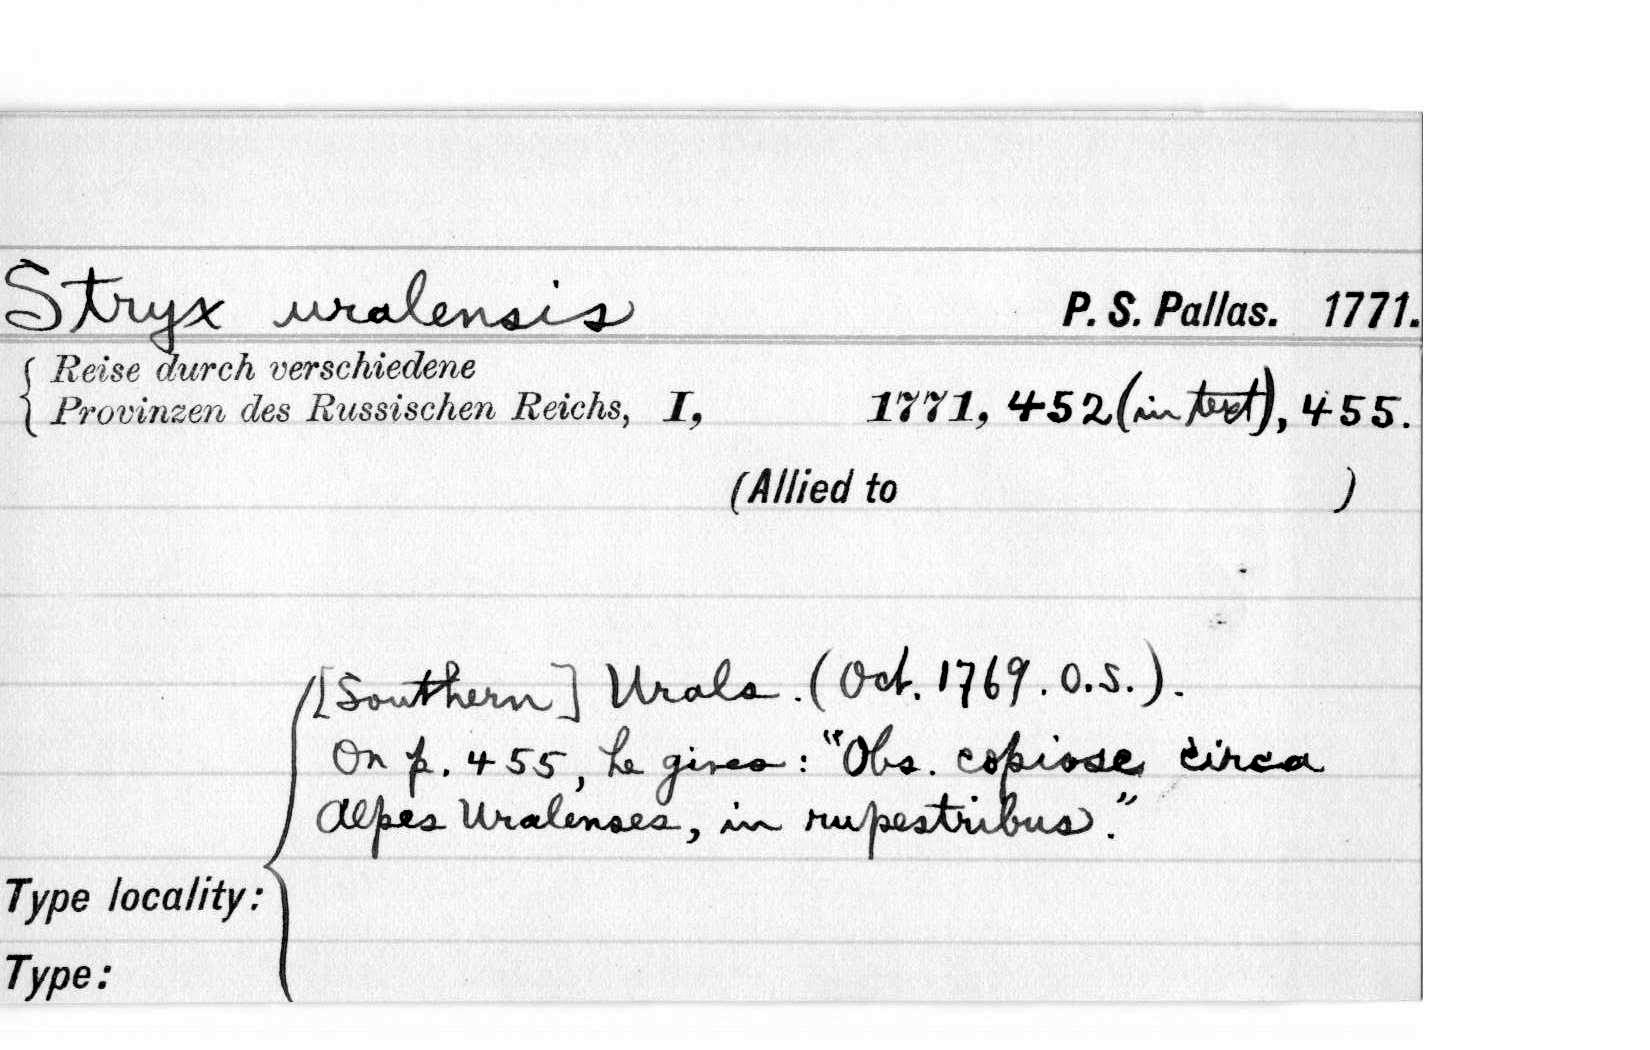 Stryx uralensis P. S. Pallas. 1771.
Reise durch verschiedene
Provinzen des Russischen Reichs, I, 1771, 452 (in text), 455.
(Allied to )
[Southern] Urals. (Oct. 1769. O.S.).
On p. 455, he gives: "Obs. copiose circa
Alpes Uralenses, in rupestribus."
Type locality:
Type: